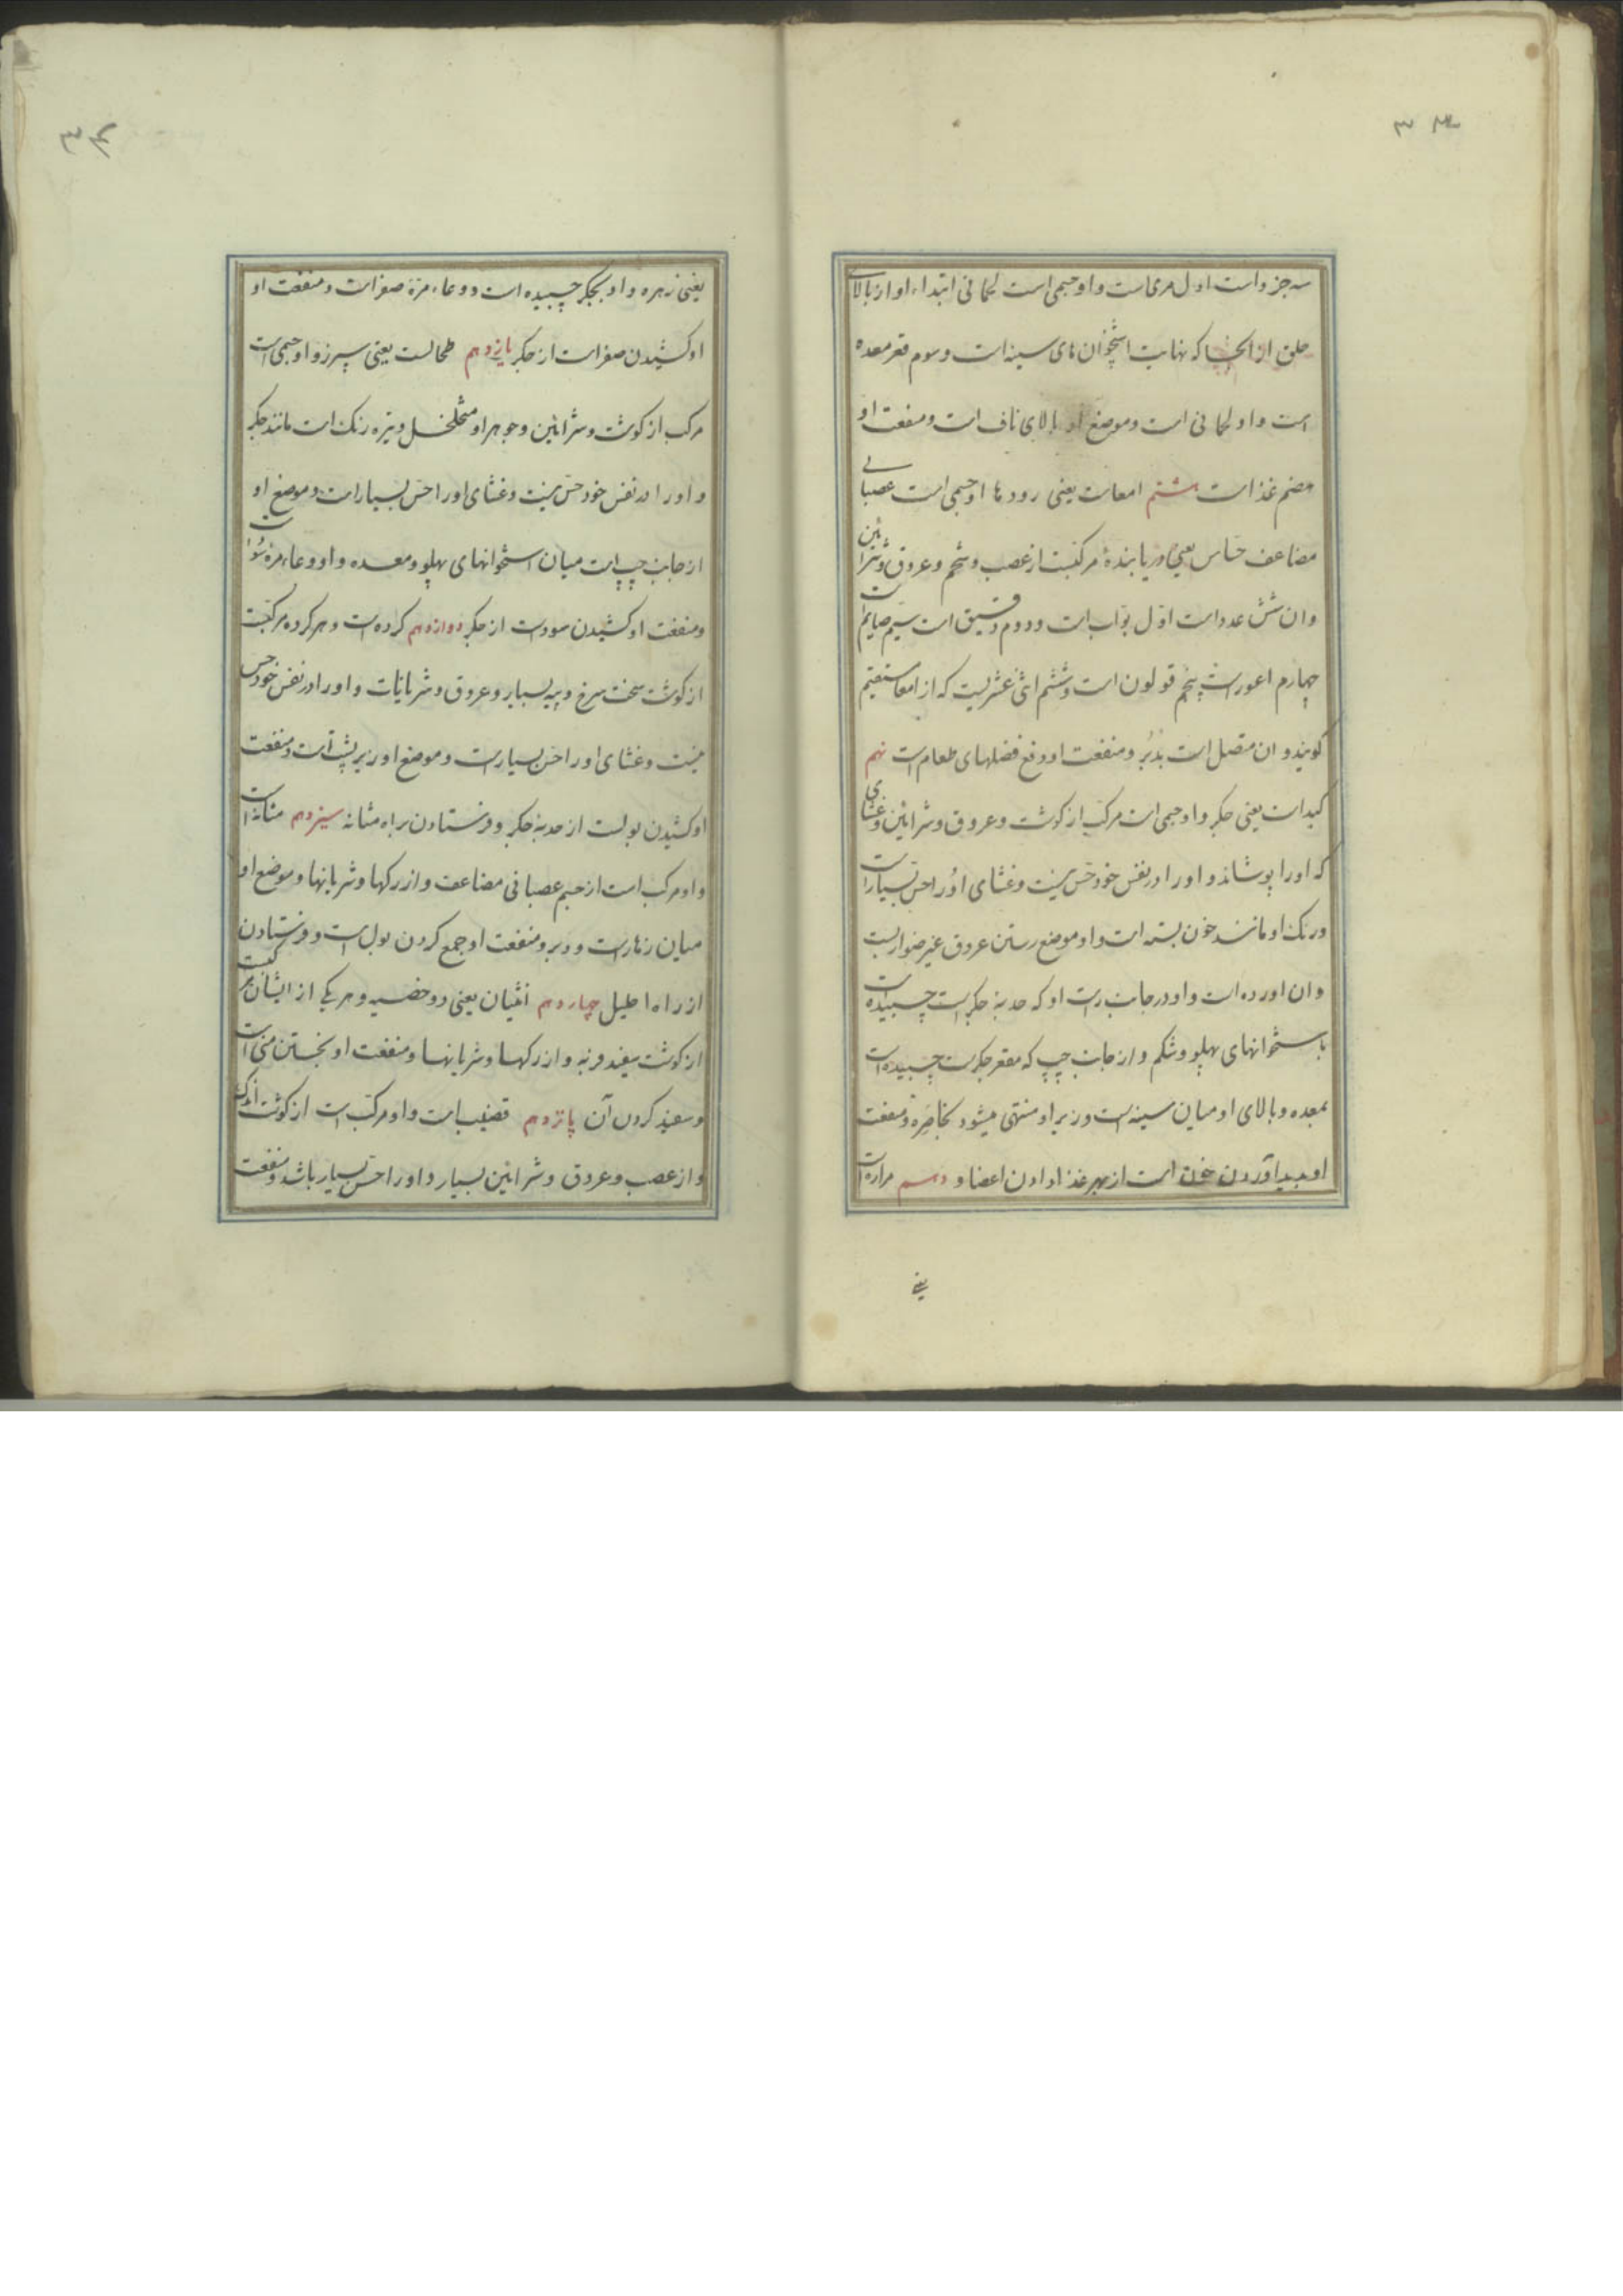 ۳۳
سه جزو است اول مری است و او جسمی است لحمانی ابتداء او از بالای
حلق از انجا که نهایت استخوان های سینه است و سوم قعر معده
است و او لحمانی است و موضع او بالای ناف است و منفعت او
هضم غذا است هشتم امعاست یعنی روده‌ها او جسمی است عصبانی
مضاعف حسّاس یعنی دریابندهٔ مرکبست از عصب و شحم و عروق و شرائین
وان شش عدد است اوّل بوّاب است و دوم دقیق است سیم صایم است
چهارم اعور است پنجم قولون است و ششم اثنی عشریست که از امعا مستقیم
کویند و ان متصل است بدُبُر و منفعت او دفع فضلهای طعام است نهم
کبد است یعنی جکر و او جسمی است مرکّب از کوشت و عروق و شرائین و غشای
که او را پوشاند و او را در نفس خود حسّ نیست و غشای او را حس بسیار است
ورنک او مانند خون بسته است و او موضع رستن عروق غیر ضوارب است
وان اورده است و او در جانب راست او که حدبهٔ جکر است چسبیده است
باستخوانهای پهلو و شکم و از جانب چپ که مقعر جکر است چسبیده است
بمعده و بالای او میان سینه است و زیر او منتهی میشود بخاصره و منفعت
او پدید آوردن خون است از بهر غذا دادن اعضا و دهم مراره است
یعنی
۳۴
یعنی زهره و او بجکر چسبیده است و وعاء مرهٔ صفراست و منفعت او
او کشیدن صفراست از جکر یازدهم طحالست یعنی سپرز و او جسمی است
مرکب از کوشت و شرائین و جوهر او متخلخل و تیره رنک است مانند جکر
و او را در نفس خود حسّ نیست و غشای او را حسّ بسیار است و موضع او
از جانب چپ است میان استخوانهای پهلو و معده و او وعاء مرهٔ سودا است
و منفعت او کشیدن سوداست از جکر دوازدهم کرده است و هر کرده مرکّبست
از کوشت سخت سرخ و پیه بسیار و عروق و شریانات و او را در نفس خود حس
نیست و غشای او را حس بسیار است و موضع او زیر پشت است و منفعت
او کشیدن بولست از حدبهٔ جکر و فرستادن براه مثانه سیزدهم مثانه است
و او مرکب است از جسم عصبانی مضاعف و از رکها و شریانها و موضع او
میان زهار است و دبر و منفعت او جمع کردن بول است و فرستادن
از راه احلیل چهاردهم انثیان یعنی دو خصیه و هر یکی از ایشان مرکبست
از کوشت سفید فربه و از رکها و شریانها و منفعت او پختن منی است
و سفید کردن آن پانزدهم قضیب است و او مرکّب است از کوشت اندک
و از عصب و عروق و شرائین بسیار و او را حسّ بسیار باشد و منفعت